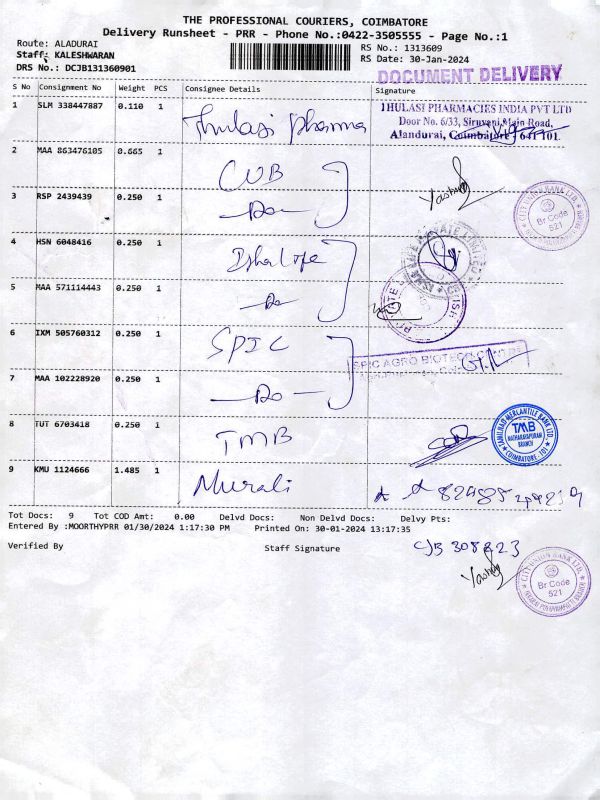 THE PROFESSIONAL COURIERS, COIMBATORE
Delivery Runsheet - PRR - Phone No.:0422-3505555 - Page No.:1
Route: ALADURAI
RS No.: 1313609
Staff: KALESHWARAN
RS Date: 30-Jan-2024
DRS No.: DCJB131360901
DOCUMENT DELIVERY
S No Consignment No Weight PCS Consignee Details Signature
1 SLM 338447887 0.110 1 Thulasi pharma
THULASI PHARMACIES INDIA PVT LTD
Door No. 6/33, Siruvani Main Road,
Alandurai, Coimbatore - 641 101.
2 MAA 863476105 0.665 1 CUB
3 RSP 2439439 0.250 1 Do
CITY UNION BANK LTD.
Br.Code
521
4 HSN 6048416 0.250 1
5 MAA 571114443 0.250 1 Do
6 IXM 505760312 0.250 1 SPIC
SPIC AGRO BIOTECH CENTRE
7 MAA 102228920 0.250 1 Do
8 TUT 6703418 0.250 1 TMB
TAMILNAD MERCANTILE BANK LTD.
TMB
BRANCH
COIMBATORE
9 KMU 1124666 1.485 1 Murali
Tot Docs: 9 Tot COD Amt: 0.00 Delvd Docs: Non Delvd Docs: Delvy Pts:
Entered By :MOORTHYPRR 01/30/2024 1:17:30 PM Printed On: 30-01-2024 13:17:35
Verified By Staff Signature
CJB 308823
CITY UNION BANK LTD.
Br.Code
521